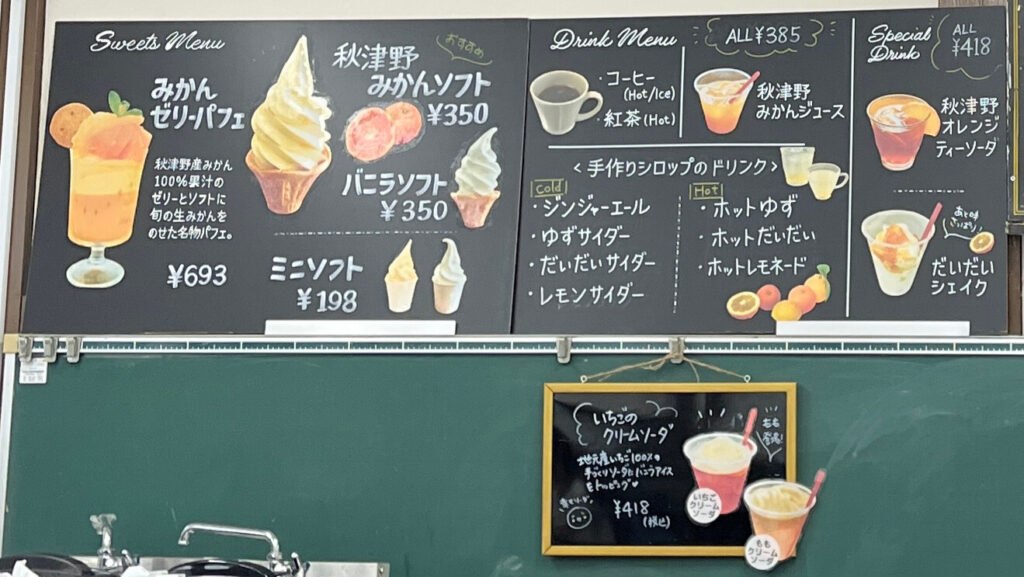 Sweets Menu
みかん
ゼリーパフェ
秋津野産みかん
100%果汁の
ゼリーとソフトに
旬の生みかんを
のせた名物パフェ。
¥693
おすすめ
秋津野
みかんソフト
¥350
バニラソフト
¥350
ミニソフト
¥198
Drink Menu
ALL¥385
・コーヒー
(Hot/Ice)
・紅茶(Hot)
秋津野
みかんジュース
<手作りシロップのドリンク>
Cold
・ジンジャーエール
・ゆずサイダー
・だいだいサイダー
・レモンサイダー
Hot
・ホットゆず
・ホットだいだい
・ホットレモネード
Special
Drink
ALL
¥418
秋津野
オレンジ
ティーソーダ
あと味
さっぱり
だいだい
シェイク
いちごの
クリームソーダ
地元産いちご100%の
手づくりソーダにバニラアイス
をトッピング
¥418
(税込)
もも
登場!
いちご
クリーム
ソーダ
もも
クリーム
ソーダ